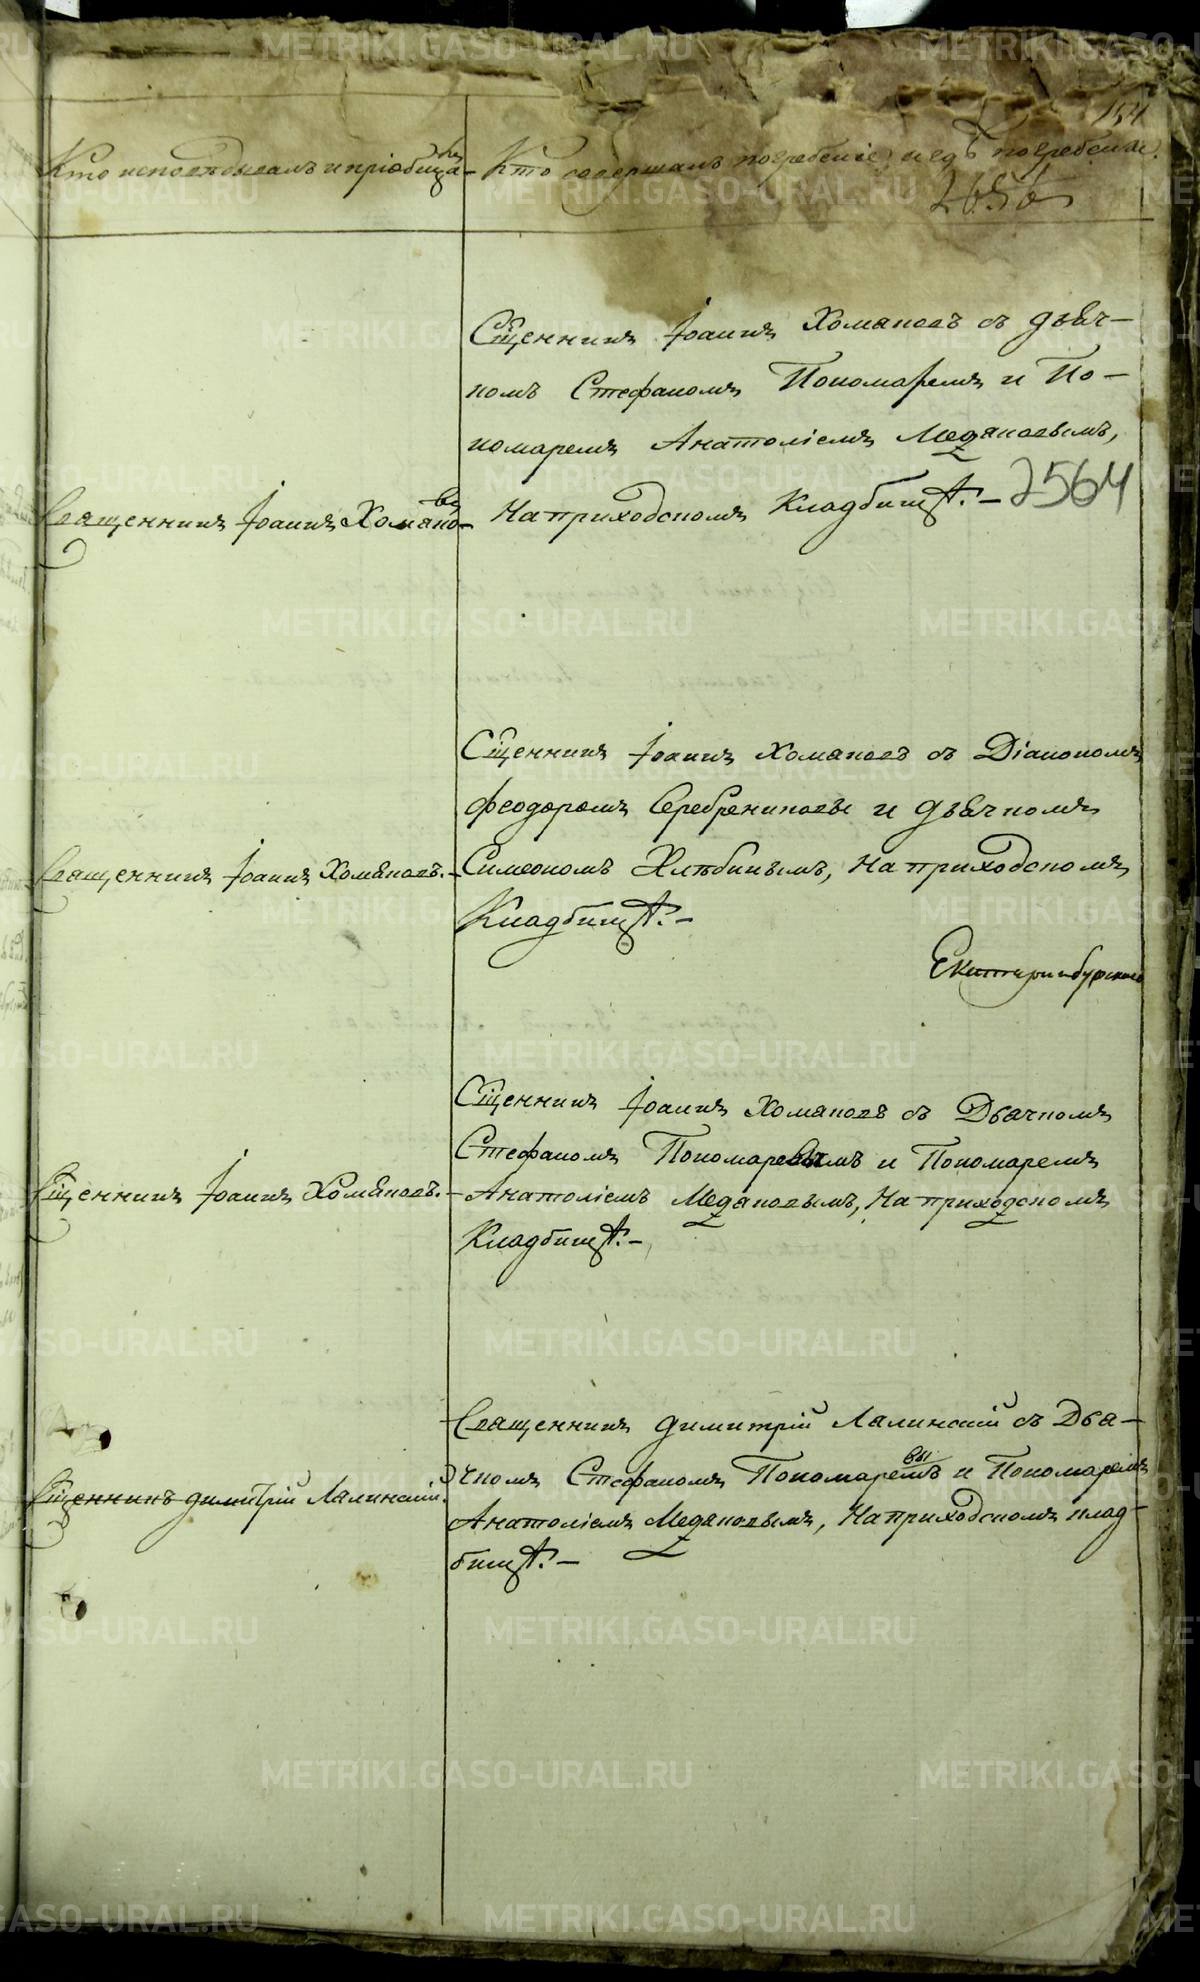 154
Кто исповѣдывалъ и пріобща-
лъ
Кто совершалъ погребеніе и гдѣ погребены.
Сщ҃енникъ Іоаннъ Хомяковъ съ дьяч-
комъ Стефаномъ Пономаремъ и По-
номаремъ Анатоліемъ Медяковымъ,
На приходскомъ Кладбищѣ.-
2564
Священникъ Іоаннъ Хомяко-
въ
Сщ҃енникъ Іоаннъ Хомяковъ съ Діакономъ
Феодоромъ Серебрениковы и дьячкомъ
Симеономъ Хлѣбинымъ, На приходскомъ
Кладбищѣ.-
Священникъ Іоаннъ Хомяковъ.-
Екатеринбургскаго
Сщ҃енникъ Іоаннъ Хомяковъ съ Дьячкомъ
Стефаномъ Пономаревымъ и Пономаремъ
Анатоліемъ Медяковымъ, На приходскомъ
Кладбищѣ.-
Сщ҃енникъ Іоаннъ Хомяковъ.-
Священникъ Димитрій Лялинскій съ Дья-
чкомъ Стефаномъ Пономаревымъ и Пономаремъ
Анатоліемъ Медяковымъ, На приходскомъ клад-
бищѣ.-
Сщ҃енникъ Димитрій Лялинскій.
METRIKI.GASO-URAL.RU